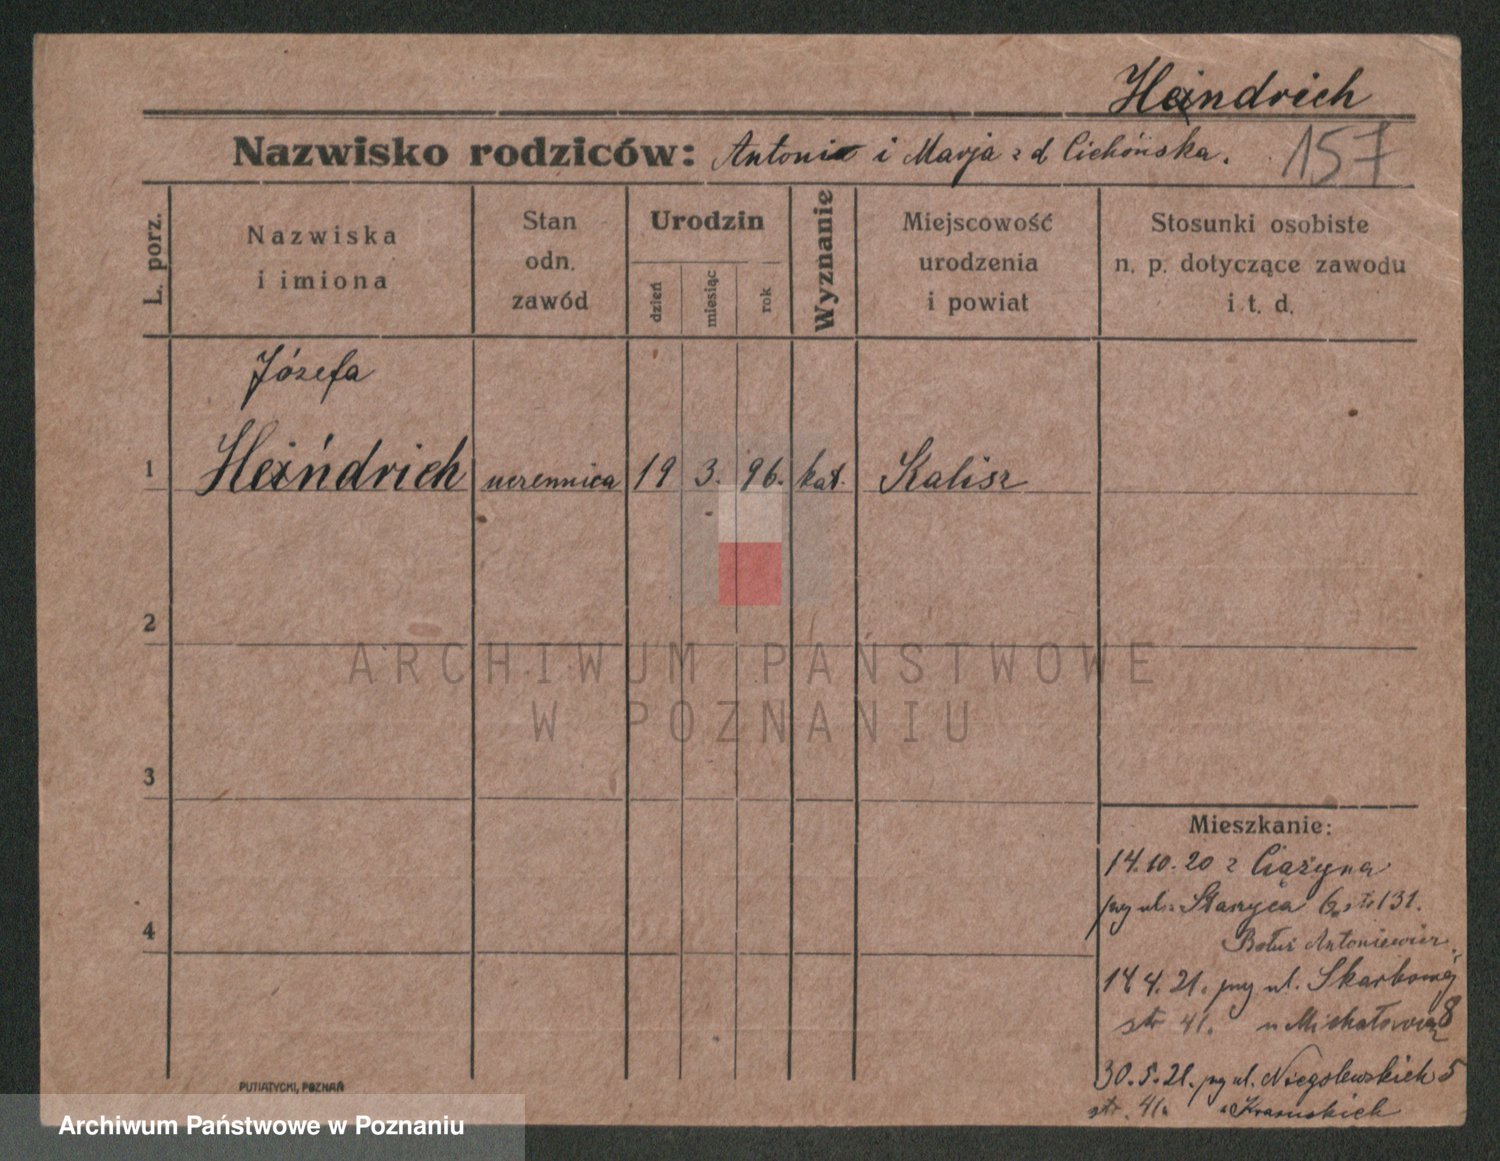 Heindrich
Nazwisko rodziców: Antoni i Marja z d Cichońska.
157
L. porz.
Nazwiska
i imiona
Stan
odn.
zawód
Urodzin
dzień
miesiąc
rok
Wyznanie
Miejscowość
urodzenia
i powiat
Stosunki osobiste
n. p. dotyczące zawodu
i t. d.
Józefa
1 Heindrich uczennica 19 3. 96. kat. Kalisz
2
ARCHIWUM PAŃSTWOWE
W POZNANIU
3
4
Mieszkanie:
14.10.20 z Ciążyna
przy ul. Staszyca str 131.
Antoniewicz
14 4. 21. przy ul. Skarbowej 8
str 41. u
30.5.21. przy ul. Niegolewskich 5
str. 41.
PUTIATYCKI, POZNAŃ
Archiwum Państwowe w Poznaniu